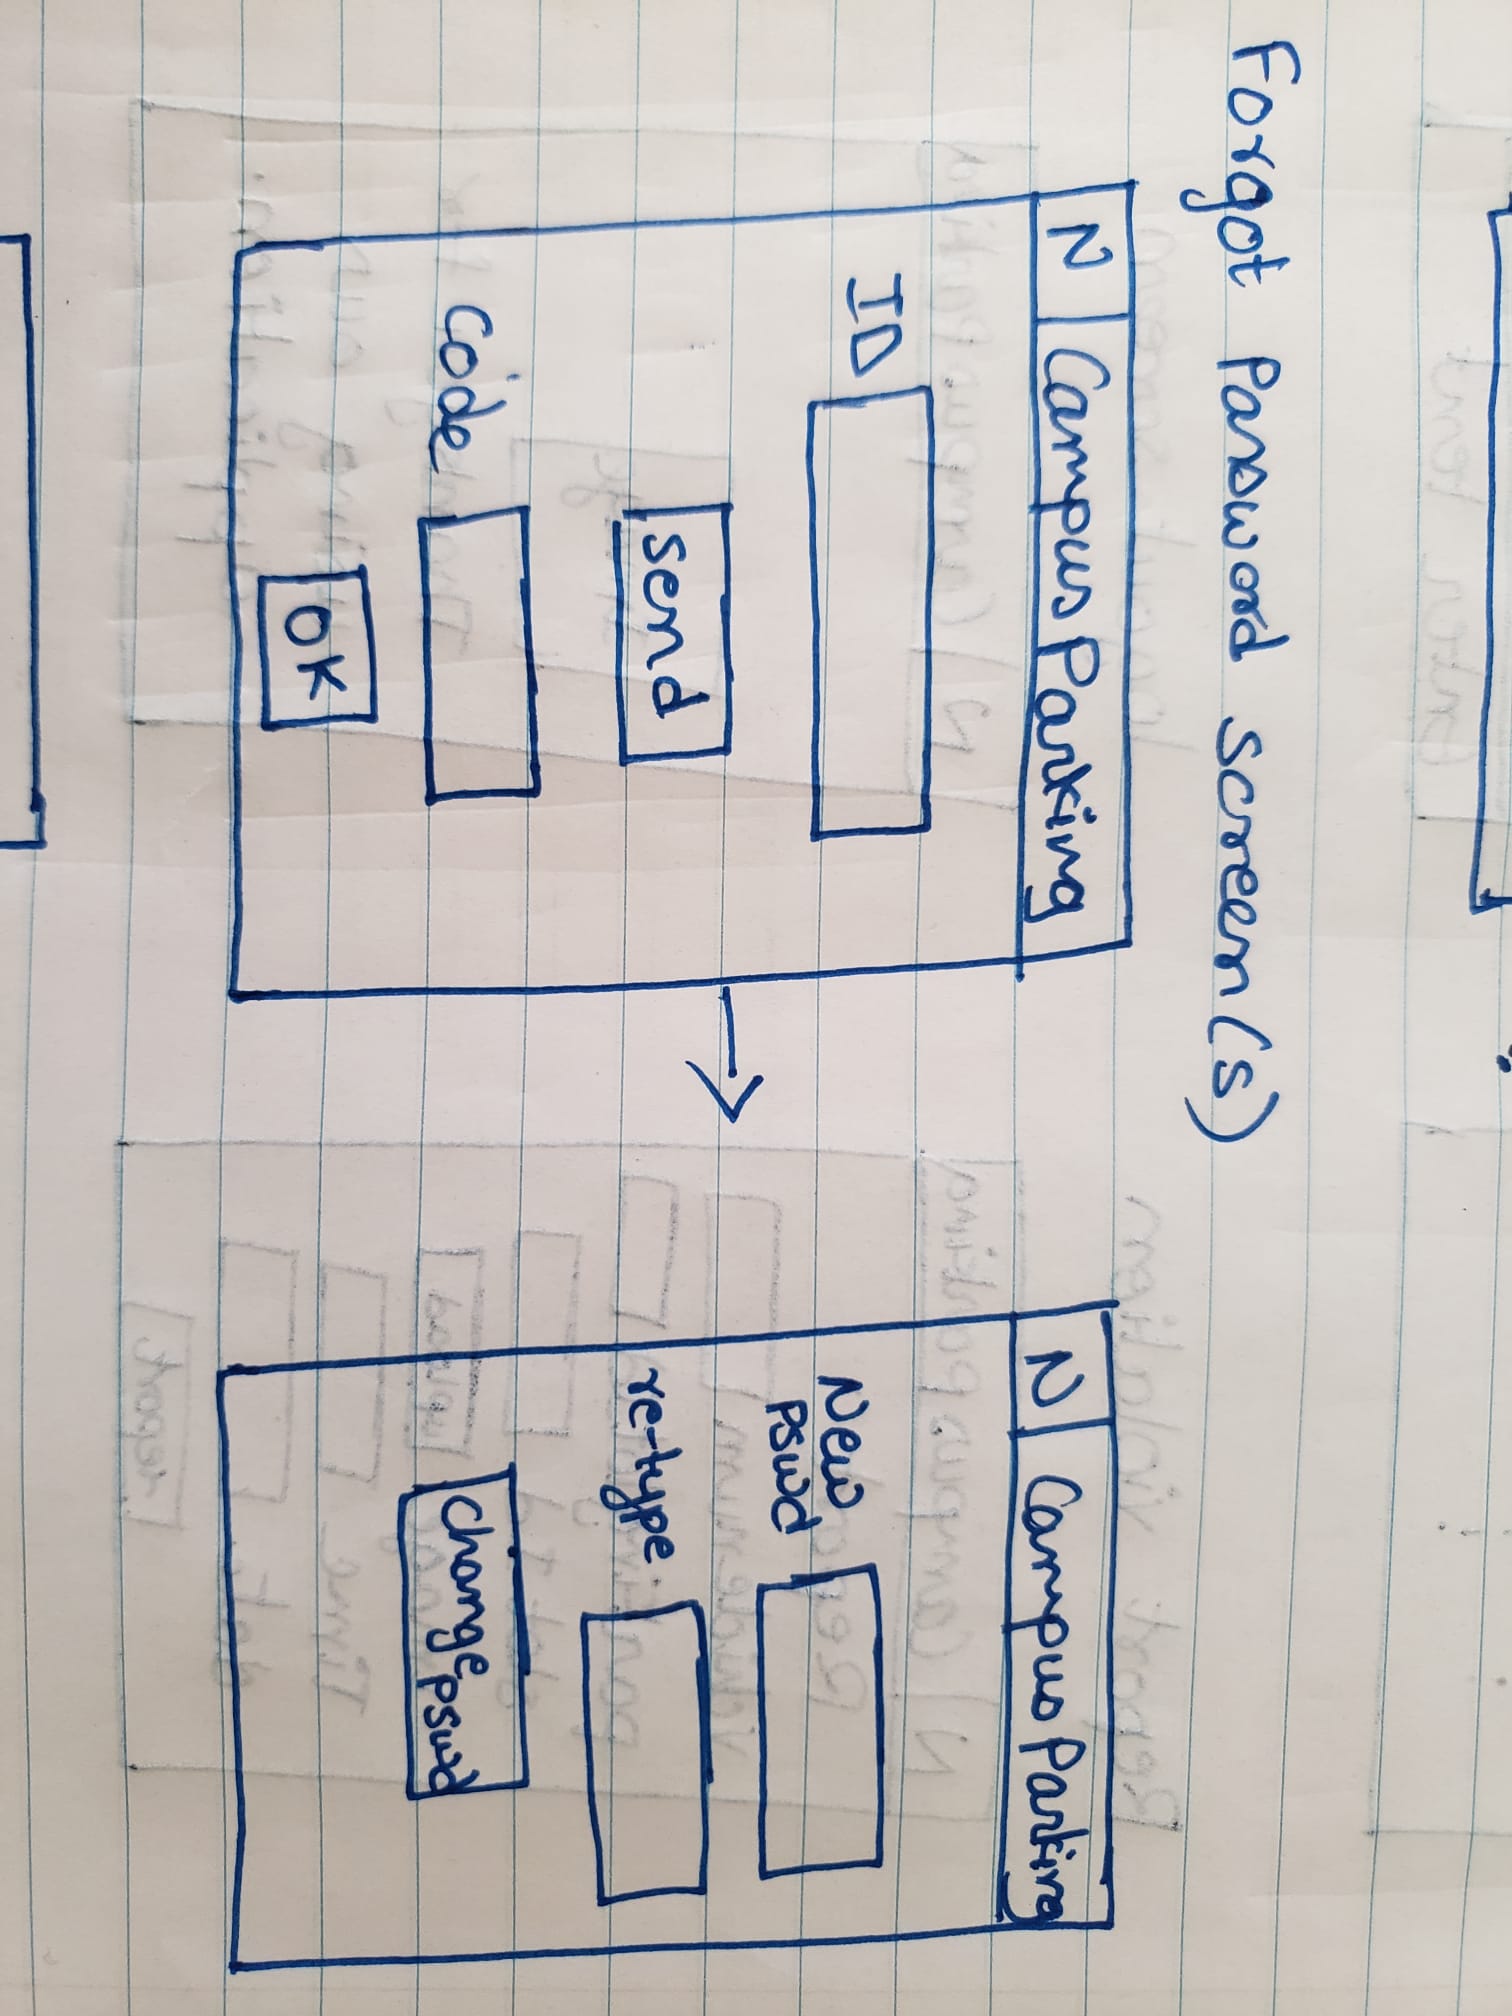 Forgot Password Screen(s)
N Campus Parking
ID
Send
Code
OK
N Campus Parking
New
pswd
re-type
Change pswd